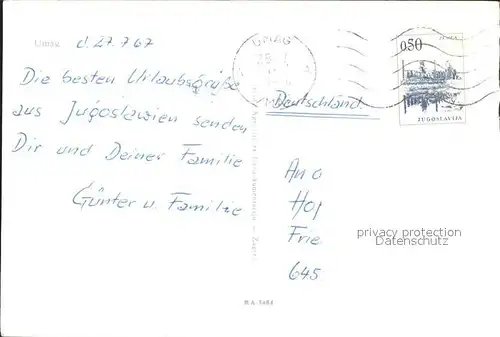 Umag d. 27.7.67
Die besten Urlaubsgrüße
aus Jugoslawien senden
Dir und Deiner Familie
Günter u. Familie
UMAG
0,50
JUGOSLAVIJA
Deutschland
An
Hof
Frie
645
privacy protection
Datenschutz